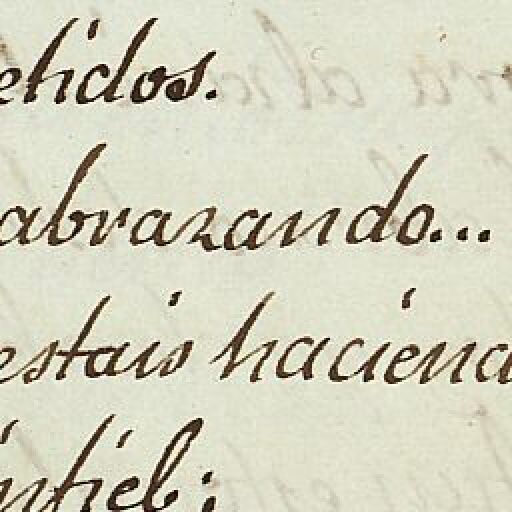 etidos.
abrazando...
estais haciena
infiel;